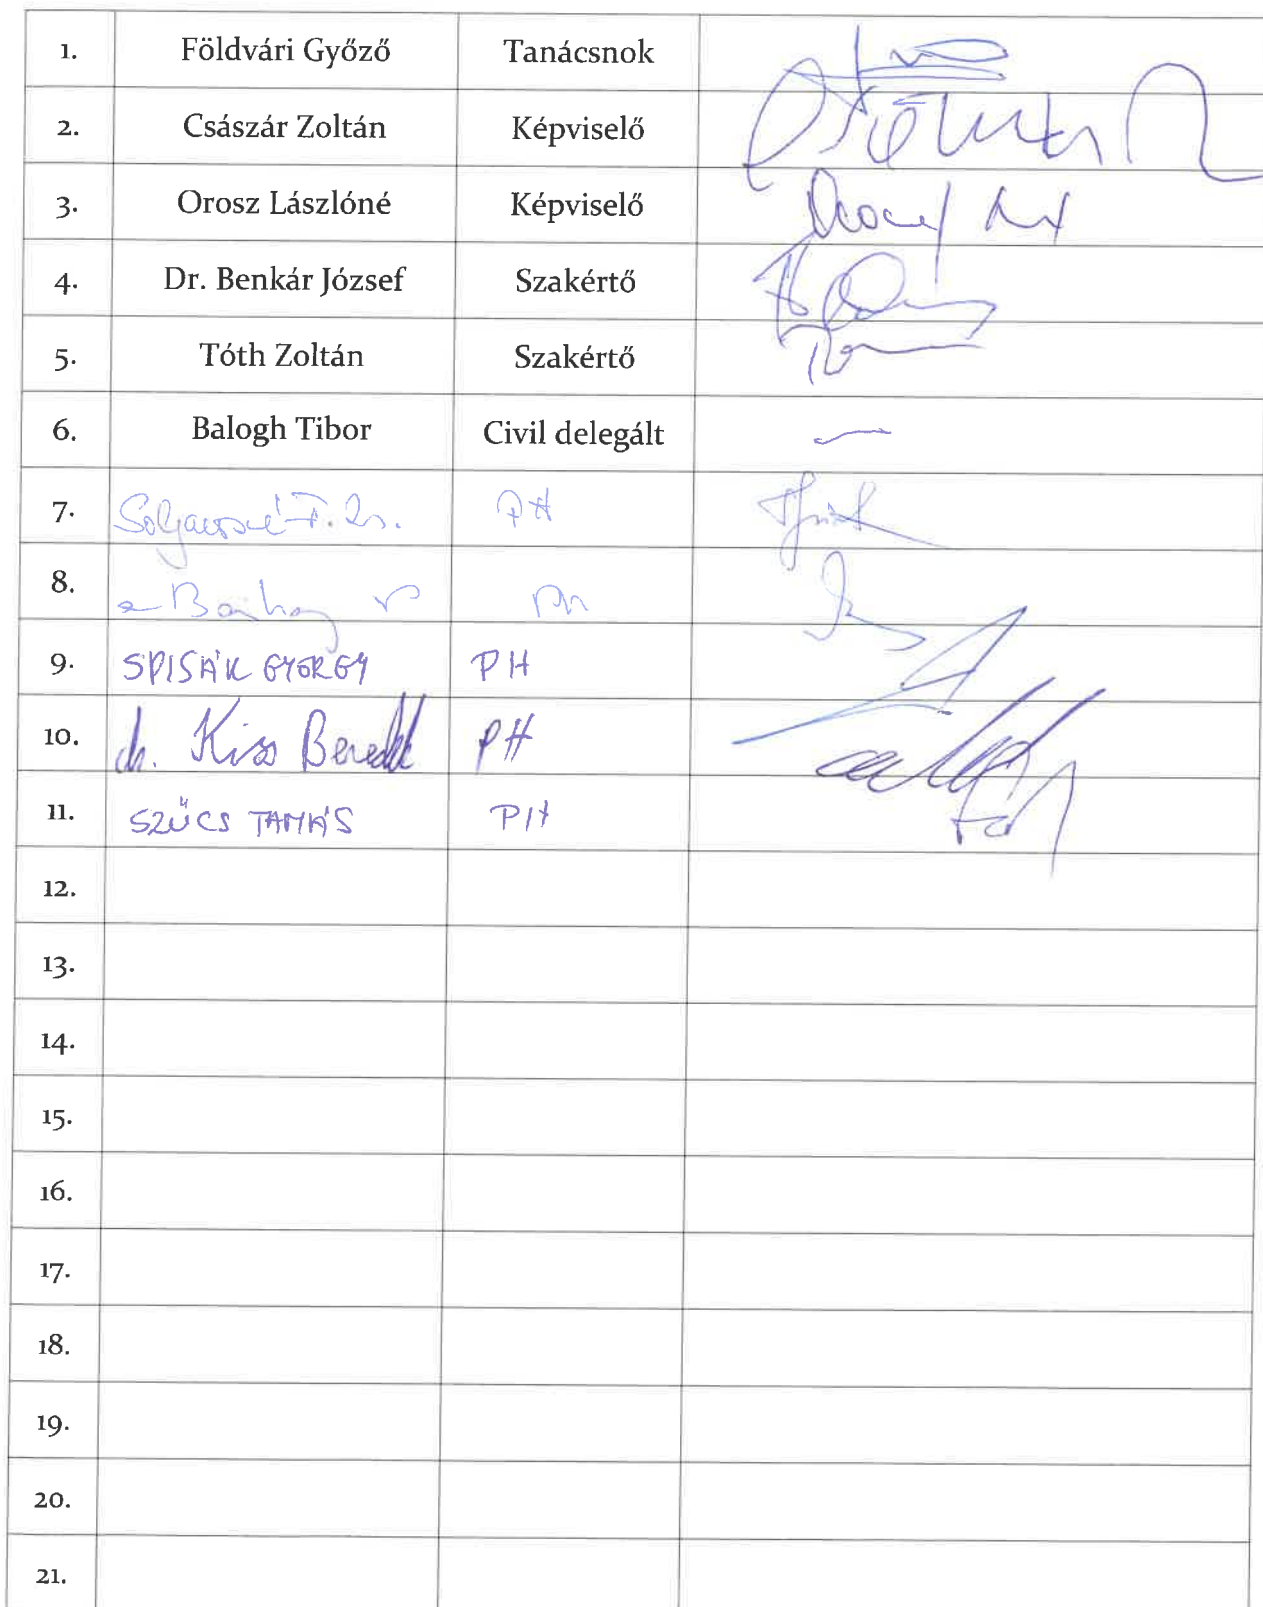 1. Földvári Győző Tanácsnok
2. Császár Zoltán Képviselő
3. Orosz Lászlóné Képviselő
4. Dr. Benkár József Szakértő
5. Tóth Zoltán Szakértő
6. Balogh Tibor Civil delegált
7. PH
8. PH
9. SPISÁK GYÖRGY PH
10. dr. Kiss Benedek PH
11. SZŰCS TAMÁS PH
12.
13.
14.
15.
16.
17.
18.
19.
20.
21.